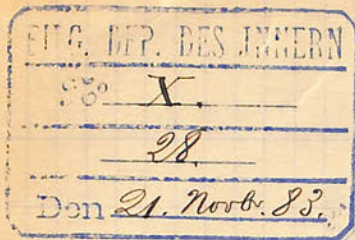 EIDG. DEP. DES INNERN
No X.
28.
Den 21. Novbr. 83.